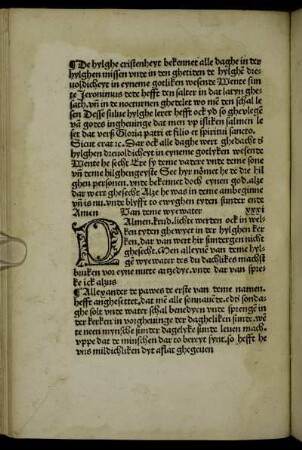 ¶ De hylghe cristenheyt bekennet alle daghe in der
hylghen missen vnde in den ghetiden de hylghe dre-
uoldicheyt in eyneme gotliken wesende Wente sun-
te Jeronimus dede hefft den salter in dat latyn ghe-
sath. vñ in de nocturnen ghedelet wo mē den schal le
sen Desse sulue hylghe lerer hefft ock vp so gheylegē
vā godes ingheuinge dat men vp isliken salmen le
set dat verß Gloria patri et filio et spiritui sancto.
Sicut erat ⁊c. Dar ock alle daghe wert ghedacht ð
hylghen dreuoldicheyt in eyneme gotlyken wesende
Wente he secht Ere sy deme vadere vnde deme sone
vñ deme hilghengeyste See hyr nömet he de dre hil
ghen personen. vnde bekennet doch eynen god. alze
dar wert ghesecht Alze he was in deme ambeginne
vñ is nu. vnde blyfft to ewyghen tyden sunder ende
Amen Van deme wyewater XXXI
D Almen. kynd. lichte werden ock in welken
tyden ghewyet in der hylghen ker
ken, dar van wert hir sundergen nicht
ghesecht. Men alleyne van deme hyl-
ge wyewater des du dachlikes machst
bruken vor eyne nutte artzedye. vnde dar van spre
ke ick alsus
¶ Alleyander de pawes de erste van deme namen.
hefft anghesettet, dat mē alle sonnauēde. edē sonda-
ghe solt vnde water schal benedyen vnde sprengē in
der kerken in vorgheuinge der daghelikē sunde. wē
te neen mynsche sunder dagelyke sunde leuen mach.
vppe dat de minschen dar to bereyt synt. so hefft he
vns mildichliken dyt aflat ghegeuen